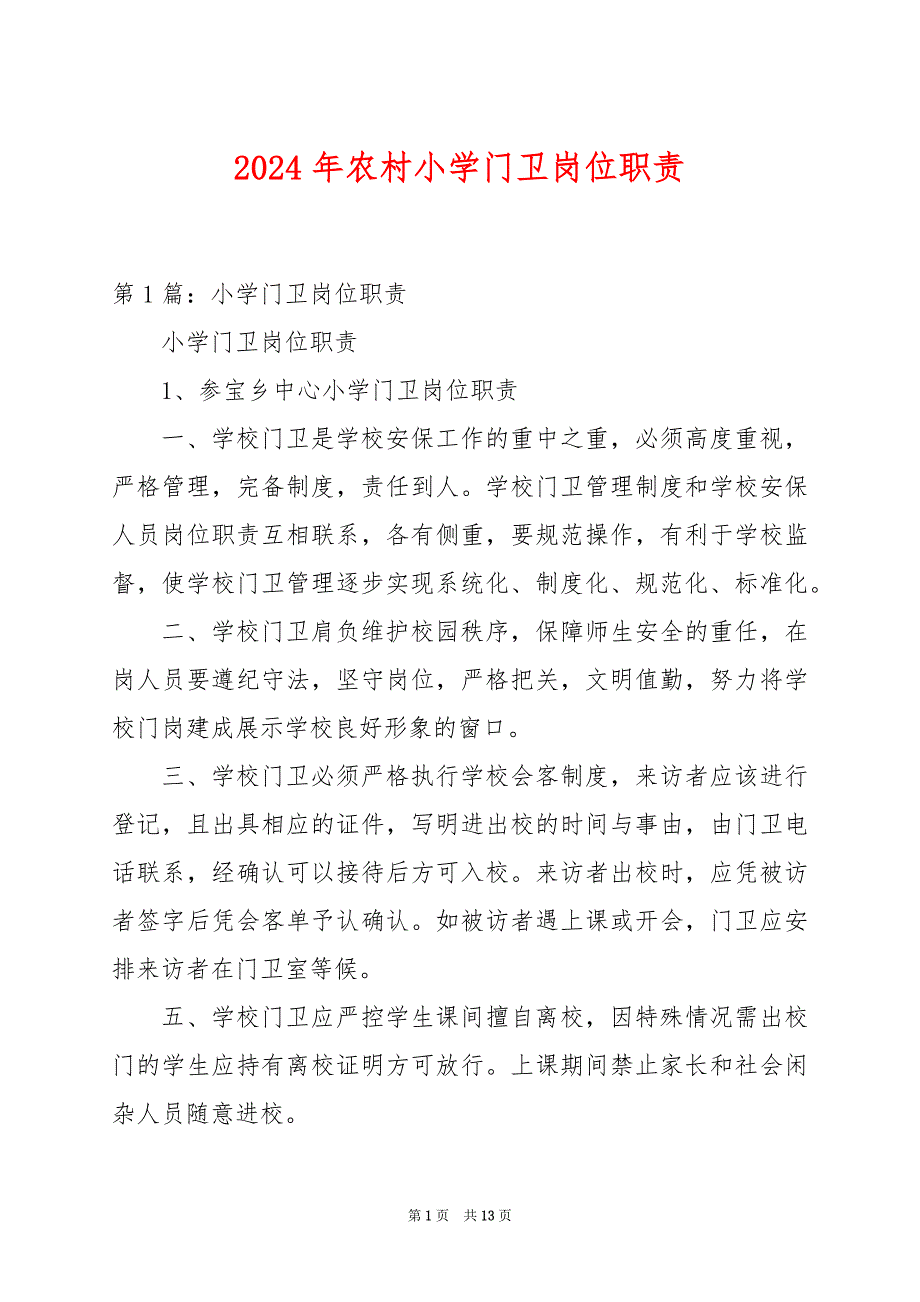 2024 年农村小学门卫岗位职责
第 1 篇：小学门卫岗位职责
小学门卫岗位职责
1、参宝乡中心小学门卫岗位职责
一、学校门卫是学校安保工作的重中之重，必须高度重视，
严格管理，完备制度，责任到人。学校门卫管理制度和学校安保
人员岗位职责互相联系，各有侧重，要规范操作，有利于学校监
督，使学校门卫管理逐步实现系统化、制度化、规范化、标准化。
二、学校门卫肩负维护校园秩序，保障师生安全的重任，在
岗人员要遵纪守法，坚守岗位，严格把关，文明值勤，努力将学
校门岗建成展示学校良好形象的窗口。
三、学校门卫必须严格执行学校会客制度，来访者应该进行
登记，且出具相应的证件，写明进出校的时间与事由，由门卫电
话联系，经确认可以接待后方可入校。来访者出校时，应凭被访
者签字后凭会客单予认确认。如被访者遇上课或开会，门卫应安
排来访者在门卫室等候。
五、学校门卫应严控学生课间擅自离校，因特殊情况需出校
门的学生应持有离校证明方可放行。上课期间禁止家长和社会闲
杂人员随意进校。
第 1 页 共 13 页